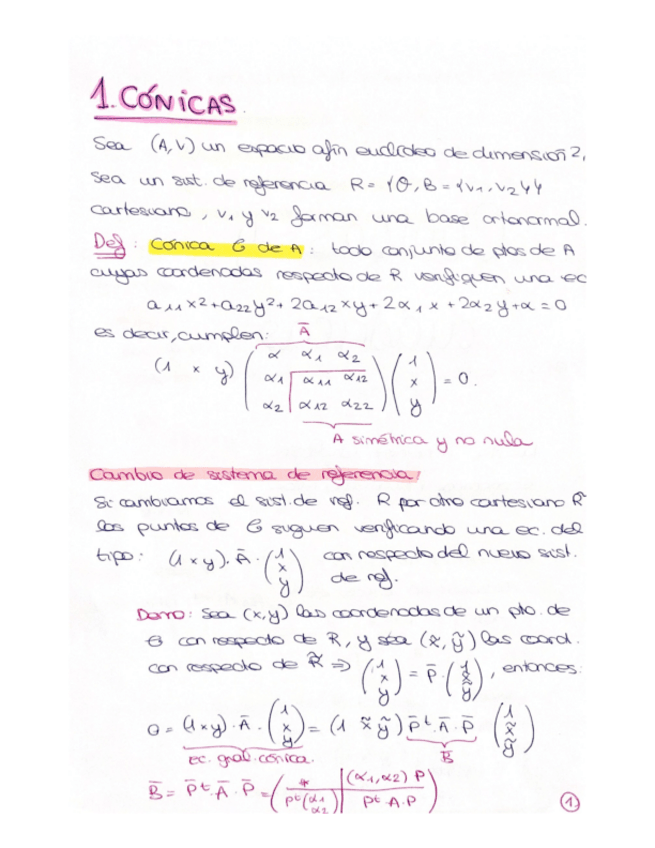 1. CÓNICAS.
Sea (A,V) un espacio afín euclídeo de dimensión 2,
sea un sist. de referencia R = {O, B = {v₁, v₂}}
cartesiano, v₁ y v₂ forman una base ortonormal.
Def: Cónica C de A: todo conjunto de ptos de A
cuyas coordenadas respecto de R verifiquen una ec
a₁₁x² + a₂₂y² + 2a₁₂xy + 2α₁x + 2α₂y + α = 0
es decir, cumplen: Ā
(1 x y) (α α₁ α₂ / α₁ α₁₁ α₁₂ / α₂ α₁₂ α₂₂) (1 / x / y) = 0.
A simétrica y no nula
Cambio de sistema de referencia
Si cambiamos el sist. de ref. R por otro cartesiano R̃
los puntos de C siguen verificando una ec. del
tipo: (1 x y). Ā · (1 / x / y) con respecto del nuevo sist.
de ref.
Demo: Sea (x,y) las coordenadas de un pto. de
C con respecto de R, y sea (x̃, ỹ) las coord.
con respecto de R̃ ⇒ (1 / x / y) = P̄ · (1 / x̃ / ỹ), entonces:
0 = (1 x y) · Ā · (1 / x / y) = (1 x̃ ỹ) P̄ᵗ · Ā · P̄ (1 / x̃ / ỹ)
ec. gral. cónica. B̄
B̄ = P̄ᵗ · Ā · P̄ = (* | (α₁, α₂) P / Pᵗ (α₁ / α₂) | Pᵗ · A · P)
1.